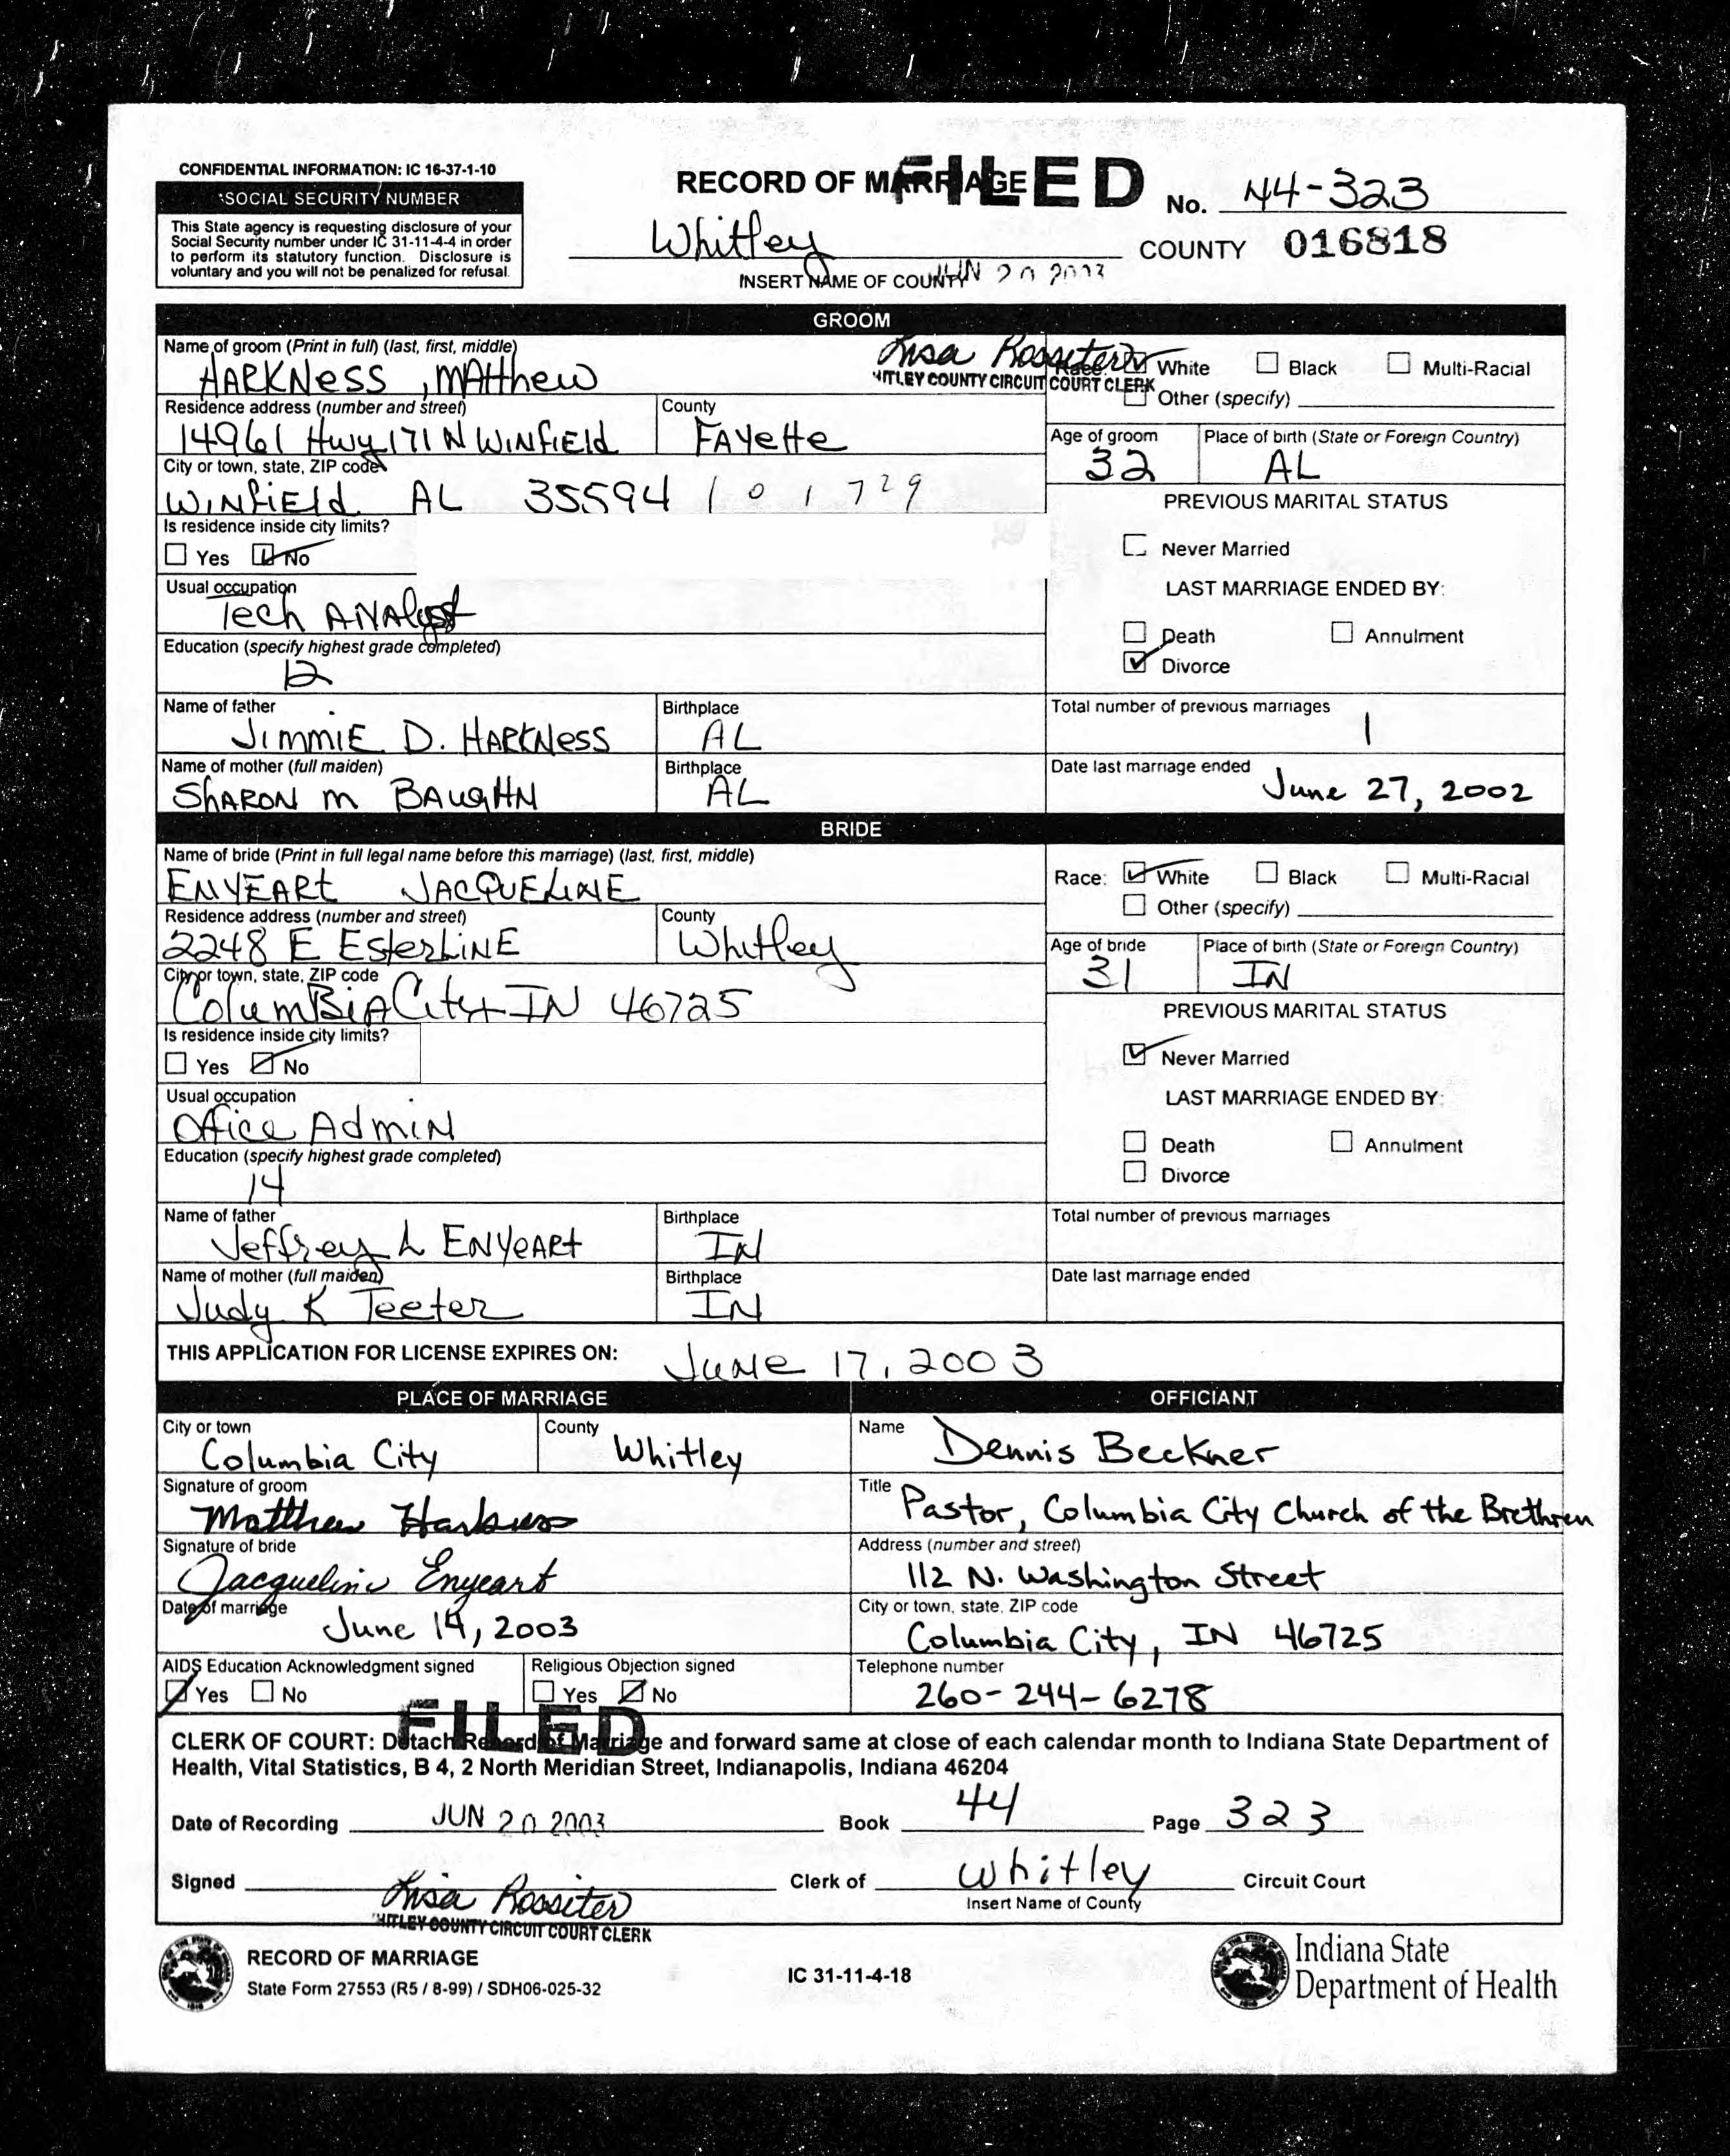 CONFIDENTIAL INFORMATION: IC 16-37-1-10
*SOCIAL SECURITY NUMBER
This State agency is requesting disclosure of your
Social Security number under IC 31-11-4-4 in order
to perform its statutory function. Disclosure is
voluntary and you will not be penalized for refusal.
RECORD OF MARRIAGE
FILED
No. 44-323
Whitley COUNTY 016818
INSERT NAME OF COUNTY
JUN 20 2003
GROOM
Name of groom (Print in full) (last, first, middle)
HARKNESS, MATthew
Lisa Rossiter
HITLEY COUNTY CIRCUIT COURT CLERK
Race: White Black Multi-Racial
Other (specify)
Residence address (number and street) County
14961 Hwy 171 N WINfiELd FAYette
Age of groom Place of birth (State or Foreign Country)
32 AL
City or town, state, ZIP code
WINfiELd AL 35594 101729
PREVIOUS MARITAL STATUS
Is residence inside city limits?
Yes No
Never Married
Usual occupation
Tech ANAlyst
LAST MARRIAGE ENDED BY:
Death Annulment
Divorce
Education (specify highest grade completed)
12
Name of father Birthplace Total number of previous marriages
JimmiE D. HARKNess AL 1
Name of mother (full maiden) Birthplace Date last marriage ended
SHARON m BAUGHN AL June 27, 2002
BRIDE
Name of bride (Print in full legal name before this marriage) (last, first, middle)
ENYEARt JACQUELINE
Race: White Black Multi-Racial
Other (specify)
Residence address (number and street) County
2248 E EsterLINE Whitley
Age of bride Place of birth (State or Foreign Country)
31 IN
City or town, state, ZIP code
ColumBiA City IN 46725
PREVIOUS MARITAL STATUS
Is residence inside city limits?
Yes No
Never Married
Usual occupation
Office AdmiN
LAST MARRIAGE ENDED BY:
Death Annulment
Divorce
Education (specify highest grade completed)
14
Name of father Birthplace Total number of previous marriages
Jeffrey L ENYeARt IN
Name of mother (full maiden) Birthplace Date last marriage ended
Judy K Teeter IN
THIS APPLICATION FOR LICENSE EXPIRES ON: JuNe 17, 2003
PLACE OF MARRIAGE OFFICIANT
City or town County Name
Columbia City Whitley Dennis Beckner
Signature of groom Title
Matthew Harkness Pastor, Columbia City Church of the Brethren
Signature of bride Address (number and street)
Jacqueline Enyeart 112 N. Washington Street
Date of marriage City or town, state, ZIP code
June 14, 2003 Columbia City, IN 46725
AIDS Education Acknowledgment signed Religious Objection signed Telephone number
Yes No Yes No 260-244-6278
FILED
CLERK OF COURT: Detach Record of Marriage and forward same at close of each calendar month to Indiana State Department of
Health, Vital Statistics, B 4, 2 North Meridian Street, Indianapolis, Indiana 46204
Date of Recording JUN 20 2003 Book 44 Page 323
Signed Lisa Rossiter Clerk of Whitley Circuit Court
Insert Name of County
HITLEY COUNTY CIRCUIT COURT CLERK
RECORD OF MARRIAGE
State Form 27553 (R5 / 8-99) / SDH06-025-32
IC 31-11-4-18
Indiana State
Department of Health